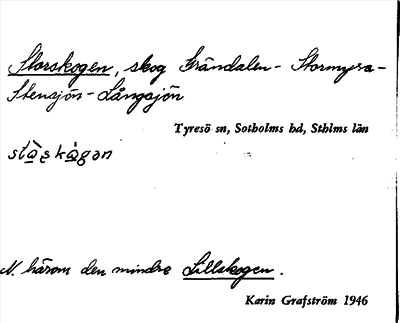 Storskogen, skog Grändalen - Stormyra -
Stensjön - Långsjön
Tyresö sn, Sotholms hd, Sthlms län
N. härom den mindre Lillskogen.
Karin Grafström 1946